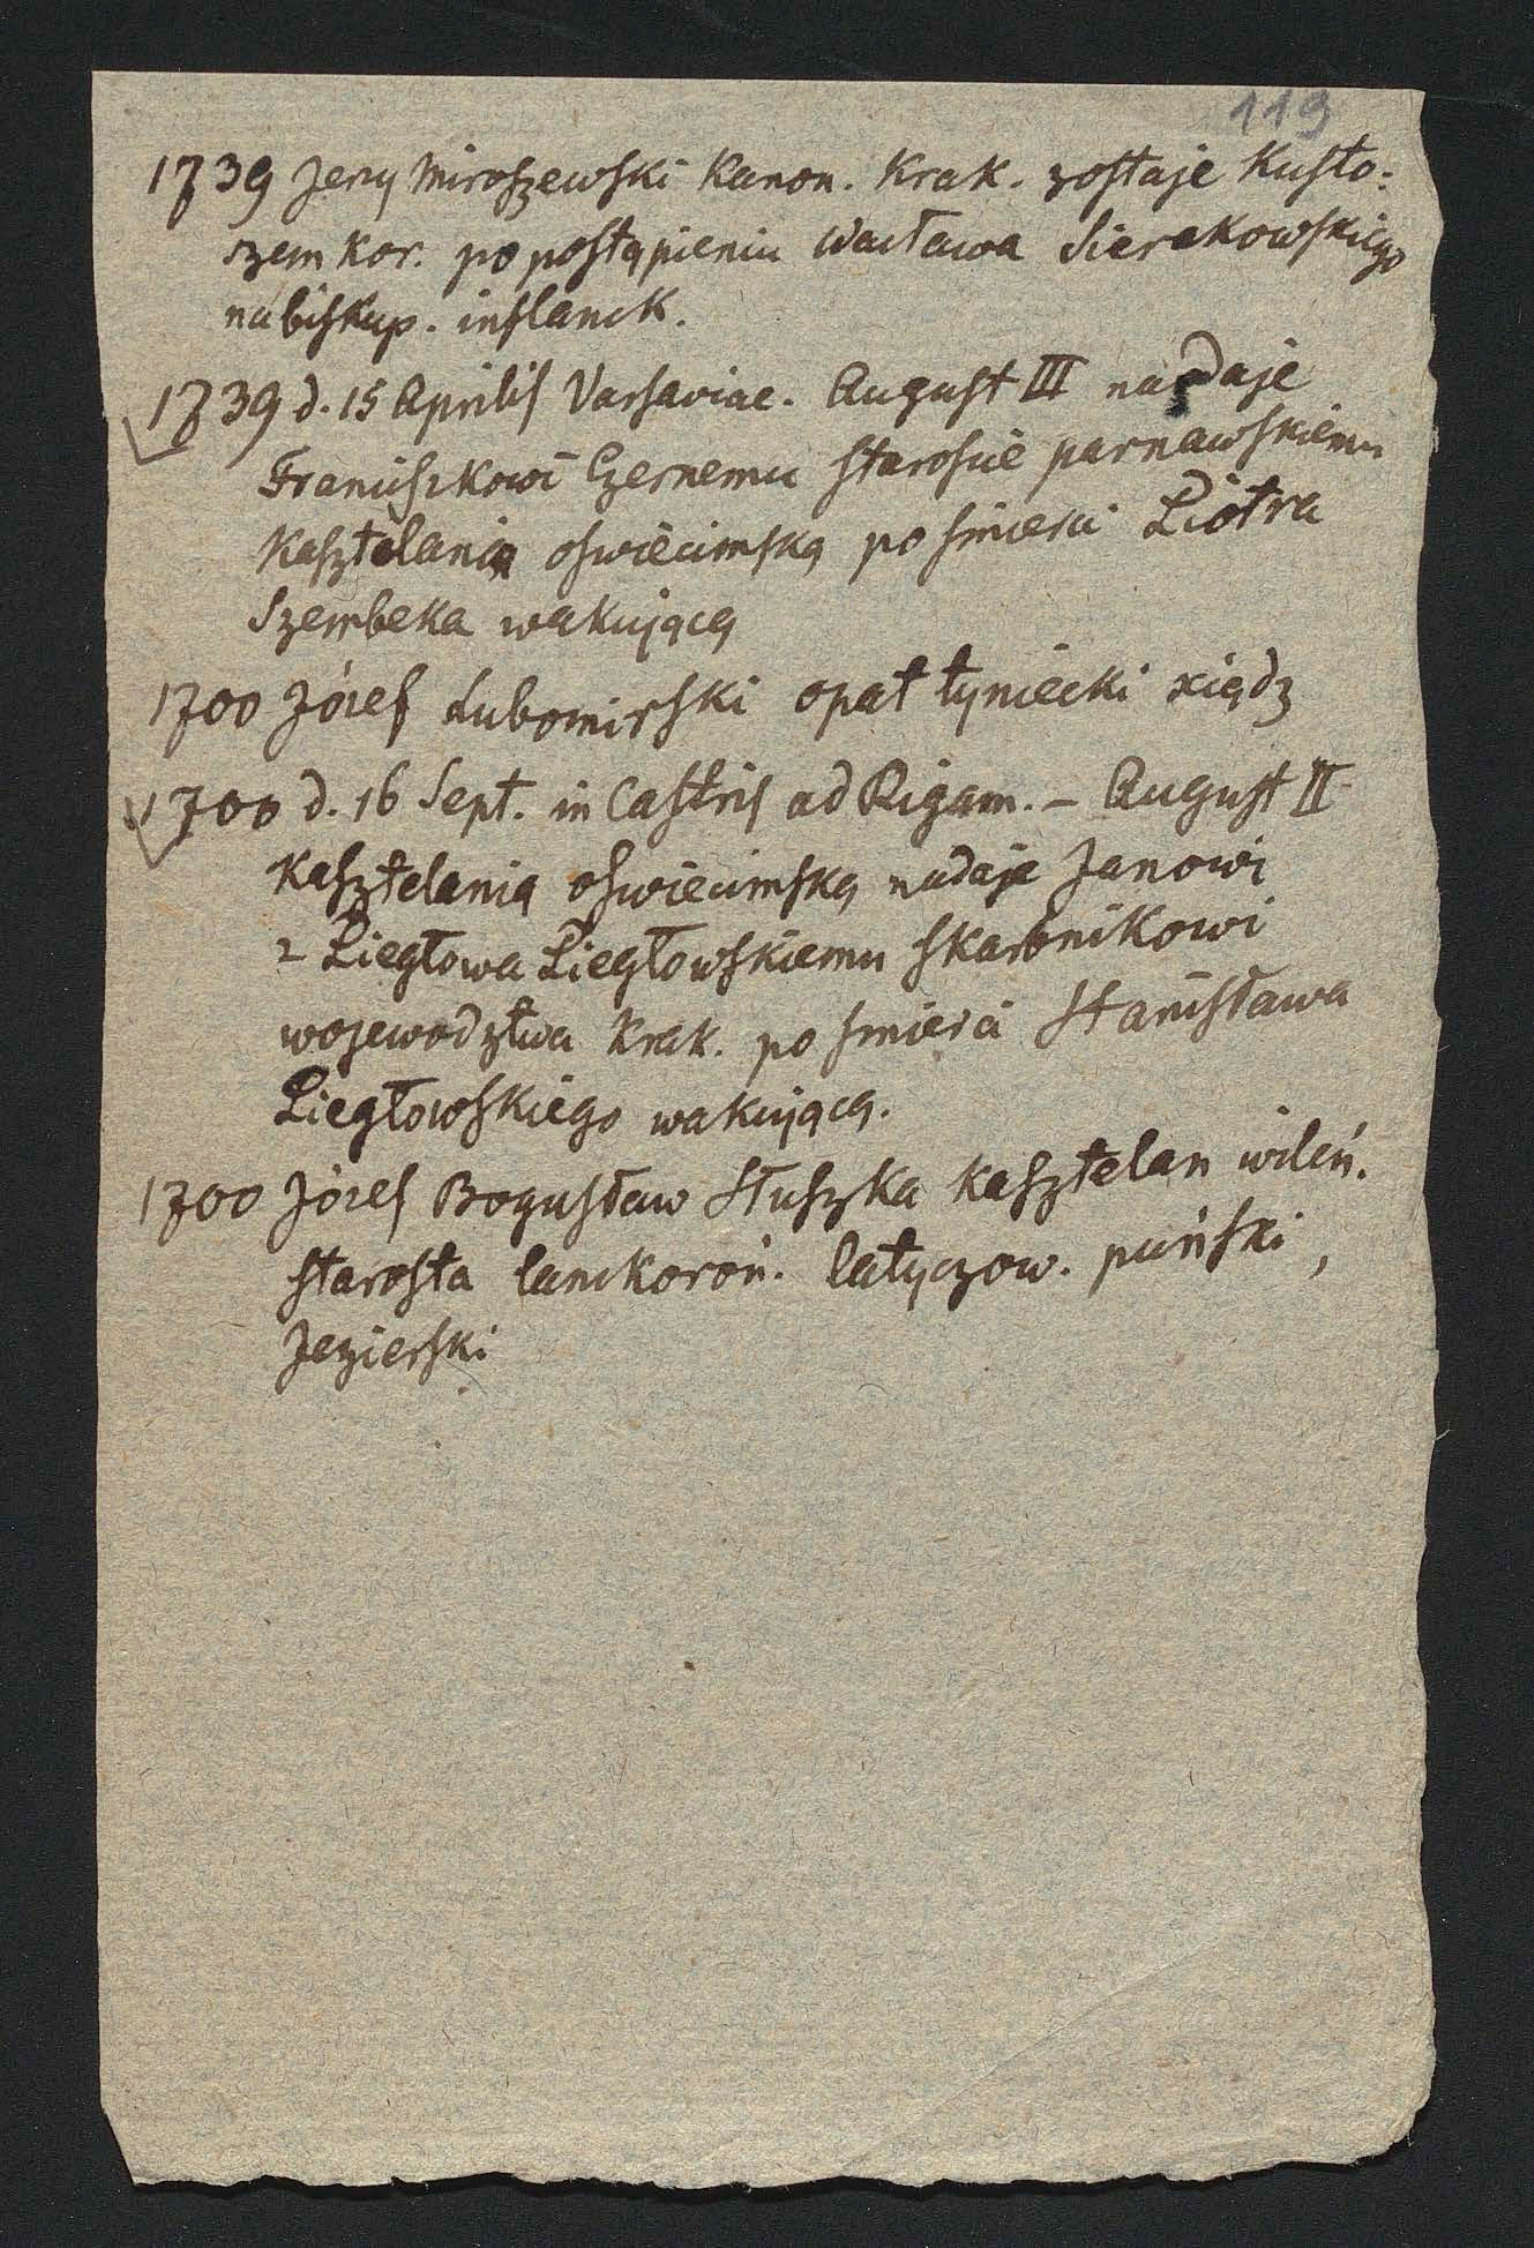 119
1739 Jerzy Miroszewski Kanon. Krak. zostaje Kusto:
szem Kor. po postąpieniu Wacława Sierakowskiego
na biskup. inflanck.
1739 d. 15 Aprilis Varsaviae. August III nadaje
Franciszkowi Czernemu staroscie parnawskiemu
Kasztelanią oswiecimską po smierci Piotra
Szembeka wakującą
1700 Józef Lubomirski opat tyniecki xiądz
1700 d. 16 Sept. in Castris ad Rigam. – August II
Kasztelanią oswiecimską nadaje Janowi
z Piegłowa Piegłowskiemu skarbnikowi
wojewodztwa Krak. po smierci Stanisława
Piegłowskiego wakującą.
1700 Józef Bogusław Słuszka Kasztelan wileń.
starosta lanckoroń. latyczow. puński,
Jezierski